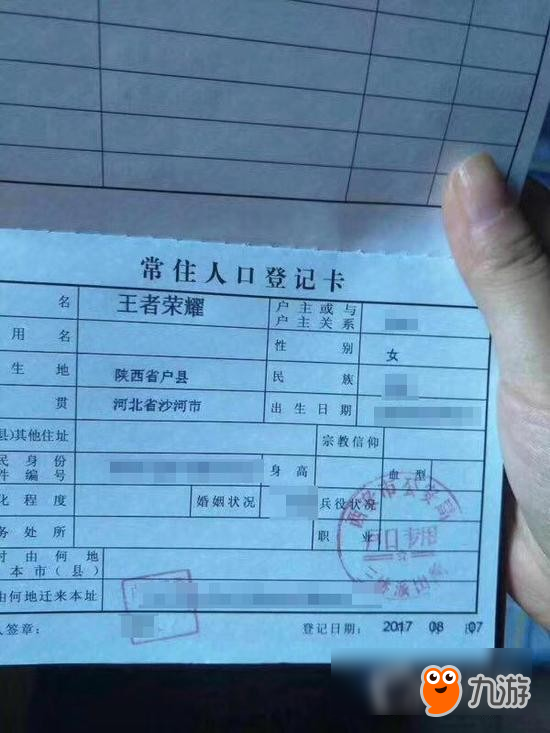 常住人口登记卡
名 王者荣耀 户主或与户主关系
用名 性别 女
生地 陕西省户县 民族
贯 河北省沙河市 出生日期
县)其他住址 宗教信仰
民身份件编号 身高 血型
化程度 婚姻状况 兵役状况
务处所 职业
时由何地本市(县)
由何地迁来本址
人签章: 登记日期: 2017 年 08 月 07
户口专用
九游